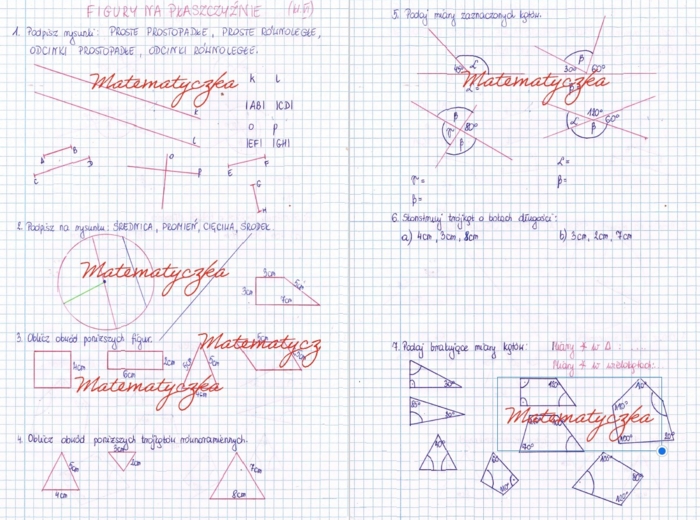 FIGURY NA PŁASZCZYŹNIE
1. Podpisz rysunki: PROSTE PROSTOPADŁE, PROSTE RÓWNOLEGŁE,
ODCINKI PROSTOPADŁE, ODCINKI RÓWNOLEGŁE.
Matematyczka
K L
|AB| |CD|
O P
|EF| |GH|
K
L
A B
C D
O
P
E F
G
H
2. Podpisz na rysunku: ŚREDNICA, PROMIEŃ, CIĘCIWA, ŚRODEK.
Matematyczka
3cm
3cm 5cm
7cm
3. Oblicz obwód poniższych figur.
Matematycz
4cm
2cm
6cm
5cm
Matematyczka
4. Oblicz obwód poniższych trójkątów równoramiennych.
5cm
4cm
3cm
2cm
7cm
8cm
5. Podaj miary zaznaczonych kątów.
Matematyczka
α
β
30° 60°
α=
β=
γ 80°
β
120°
α 60°
β
γ=
β=
α=
β=
6. Skonstruuj trójkąt o bokach długości:
a) 4cm, 3cm, 2cm b) 3cm, 2cm, 7cm
7. Podaj brakujące miary kątów:
Miary ∢ w Δ
Miary ∢ w
Matematyczka